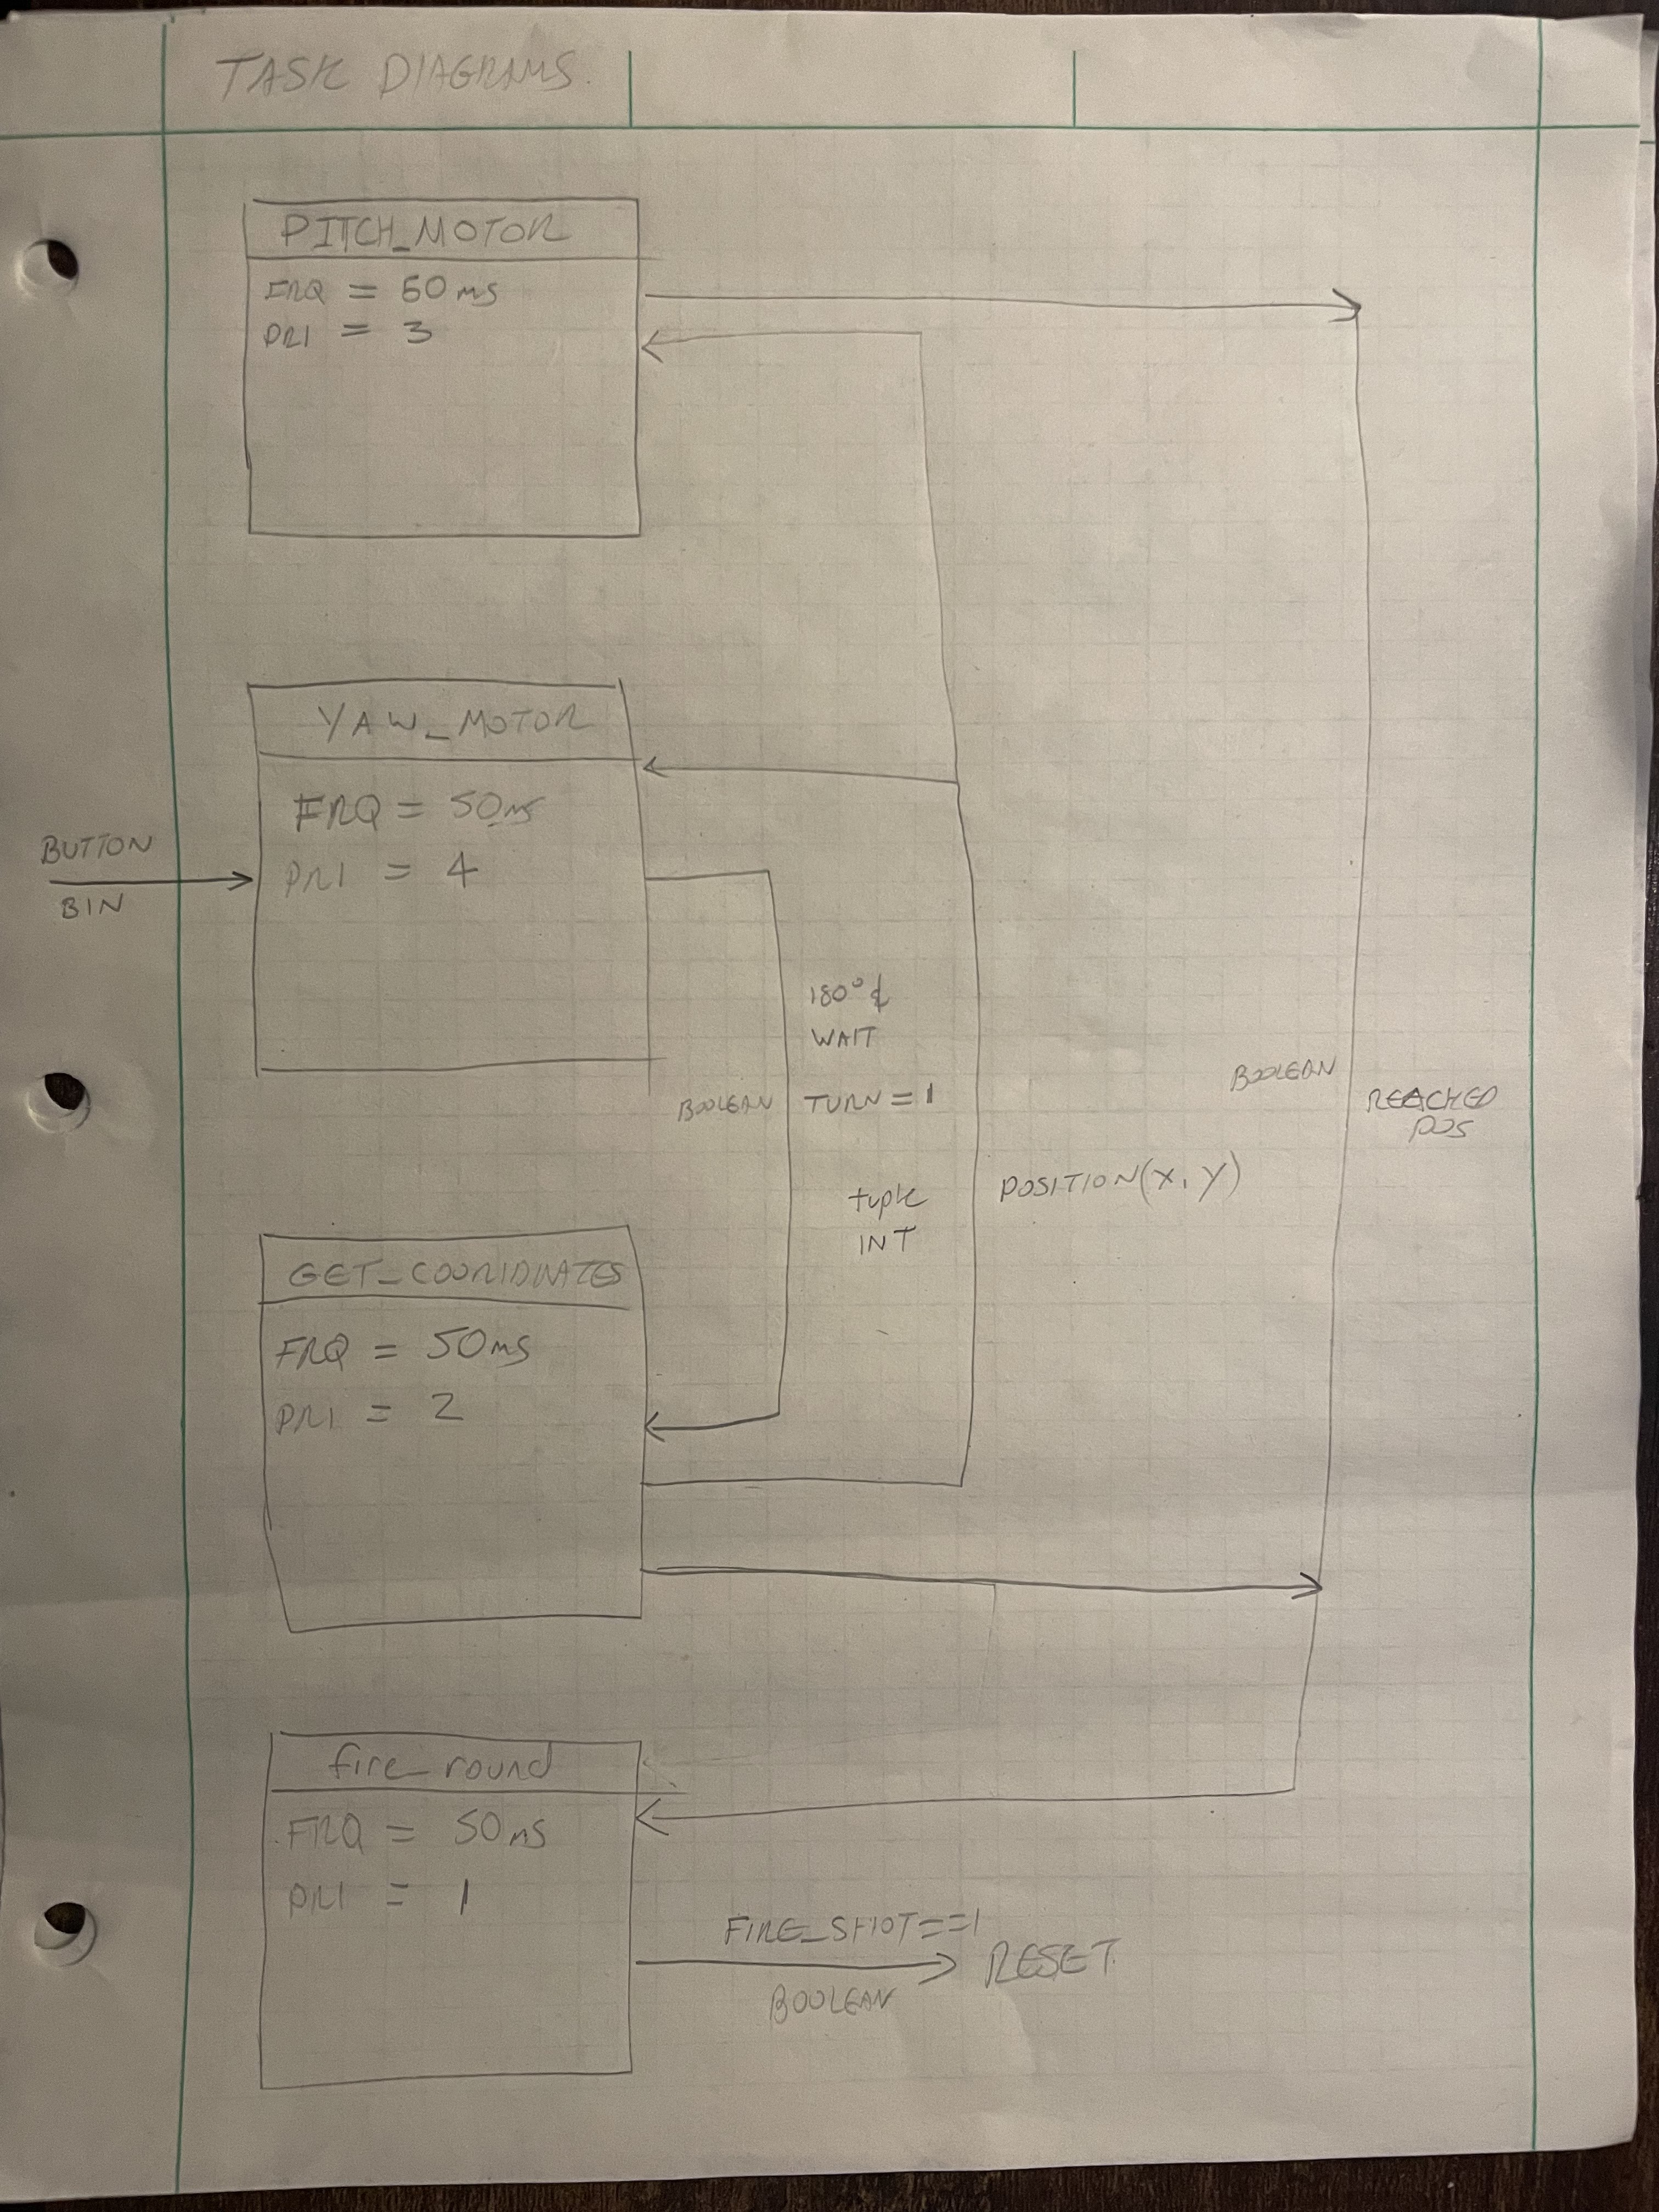 TASK DIAGRAMS.
PITCH_MOTOR
FRQ = 50ms
PRI = 3
YAW_MOTOR
FRQ = 50ms
PRI = 4
BUTTON
BIN
180° &
WAIT
BOOLEAN
TURN = 1
BOOLEAN
REACHED
POS
tuple
INT
POSITION(X, Y)
GET_COORIDINATES
FRQ = 50ms
PRI = 2
fire_round
FRQ = 50ms
PRI = 1
FIRE_SHOT==1
RESET
BOOLEAN